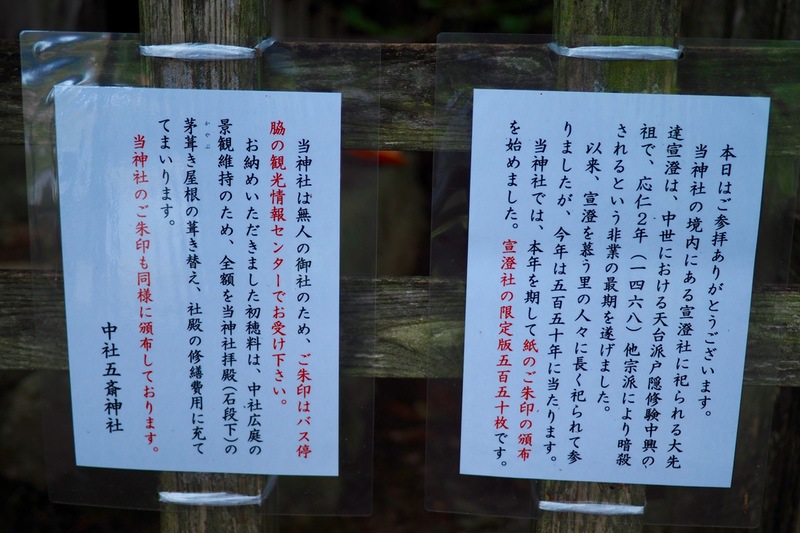 本日はご参拝ありがとうございます。
当神社の境内にある宣澄社に祀られる大先
達宣澄は、中世における天台派戸隠修験中興の
祖で、応仁２年（一四六八）他宗派により暗殺
されるという非業の最期を遂げました。
以来、宣澄を慕う里の人々に長く祀られて参
りましたが、今年は五百五十年に当たります。
当神社では、本年を期して紙のご朱印の頒布
を始めました。宣澄社の限定版五百五十枚です。
当神社は無人の御社のため、ご朱印はバス停
脇の観光情報センターでお受け下さい。
お納めいただきました初穂料は、中社広庭の
景観維持のため、全額を当神社拝殿（石段下）の
茅葺き屋根の葺き替え、社殿の修繕費用に充て
かやぶ
てまいります。
当神社のご朱印も同様に頒布しております。
中社五斎神社